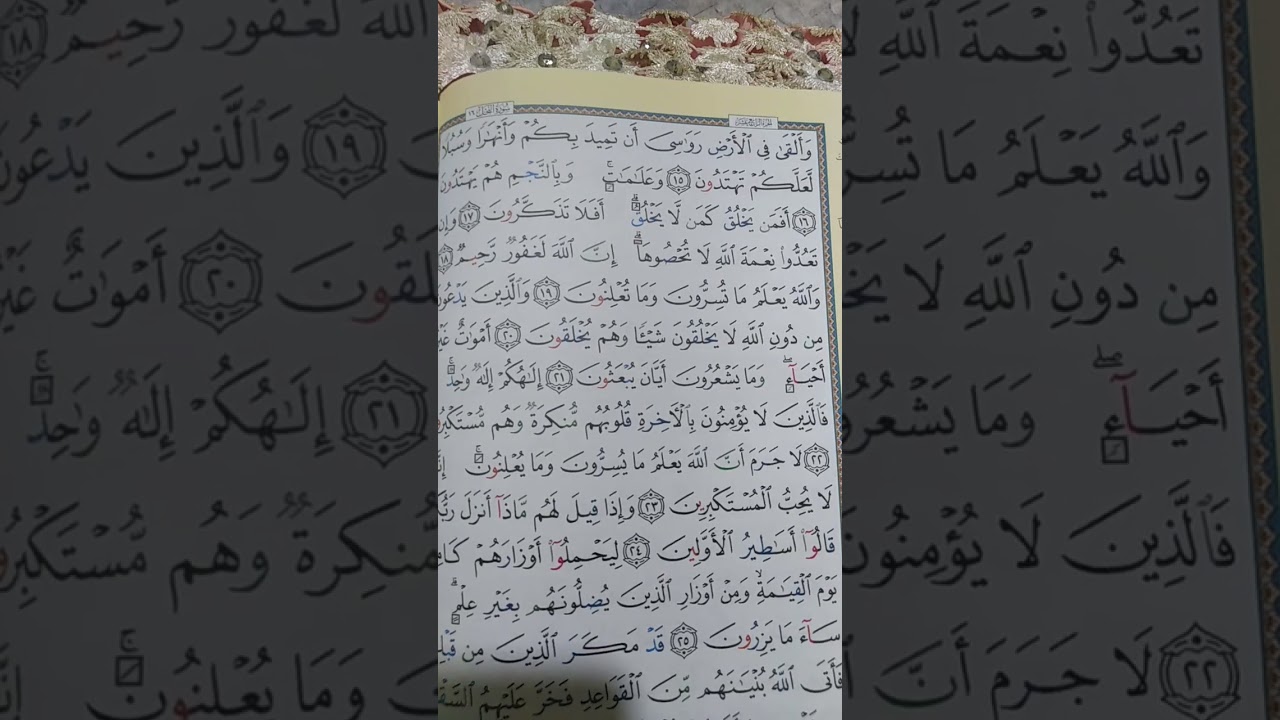 سورة النحل ١٦
الجزء الرابع عشر
وَأَلْقَىٰ فِى ٱلْأَرْضِ رَوَٰسِىَ أَن تَمِيدَ بِكُمْ وَأَنْهَٰرًا وَسُبُلًا
لَّعَلَّكُمْ تَهْتَدُونَ ١٥ وَعَلَٰمَٰتٍ ۚ وَبِٱلنَّجْمِ هُمْ يَهْتَدُونَ
١٦ أَفَمَن يَخْلُقُ كَمَن لَّا يَخْلُقُ ۗ أَفَلَا تَذَكَّرُونَ ١٧ وَإِن
تَعُدُّوا۟ نِعْمَةَ ٱللَّهِ لَا تُحْصُوهَآ ۗ إِنَّ ٱللَّهَ لَغَفُورٌ رَّحِيمٌ ١٨
وَٱللَّهُ يَعْلَمُ مَا تُسِرُّونَ وَمَا تُعْلِنُونَ ١٩ وَٱلَّذِينَ يَدْعُونَ
مِن دُونِ ٱللَّهِ لَا يَخْلُقُونَ شَيْـًٔا وَهُمْ يُخْلَقُونَ ٢٠ أَمْوَٰتٌ غَيْرُ
أَحْيَآءٍ ۖ وَمَا يَشْعُرُونَ أَيَّانَ يُبْعَثُونَ ٢١ إِلَٰهُكُمْ إِلَٰهٌ وَٰحِدٌ ۚ
فَٱلَّذِينَ لَا يُؤْمِنُونَ بِٱلْءَاخِرَةِ قُلُوبُهُم مُّنكِرَةٌ وَهُم مُّسْتَكْبِرُونَ
٢٢ لَا جَرَمَ أَنَّ ٱللَّهَ يَعْلَمُ مَا يُسِرُّونَ وَمَا يُعْلِنُونَ ۚ إِنَّهُ
لَا يُحِبُّ ٱلْمُسْتَكْبِرِينَ ٢٣ وَإِذَا قِيلَ لَهُم مَّاذَآ أَنزَلَ رَبُّكُمْ
قَالُوٓا۟ أَسَٰطِيرُ ٱلْأَوَّلِينَ ٢٤ لِيَحْمِلُوٓا۟ أَوْزَارَهُمْ كَامِلَةً
يَوْمَ ٱلْقِيَٰمَةِ ۙ وَمِنْ أَوْزَارِ ٱلَّذِينَ يُضِلُّونَهُم بِغَيْرِ عِلْمٍ ۗ
سَآءَ مَا يَزِرُونَ ٢٥ قَدْ مَكَرَ ٱلَّذِينَ مِن قَبْلِهِمْ
فَأَتَى ٱللَّهُ بُنْيَٰنَهُم مِّنَ ٱلْقَوَاعِدِ فَخَرَّ عَلَيْهِمُ ٱلسَّقْفُ